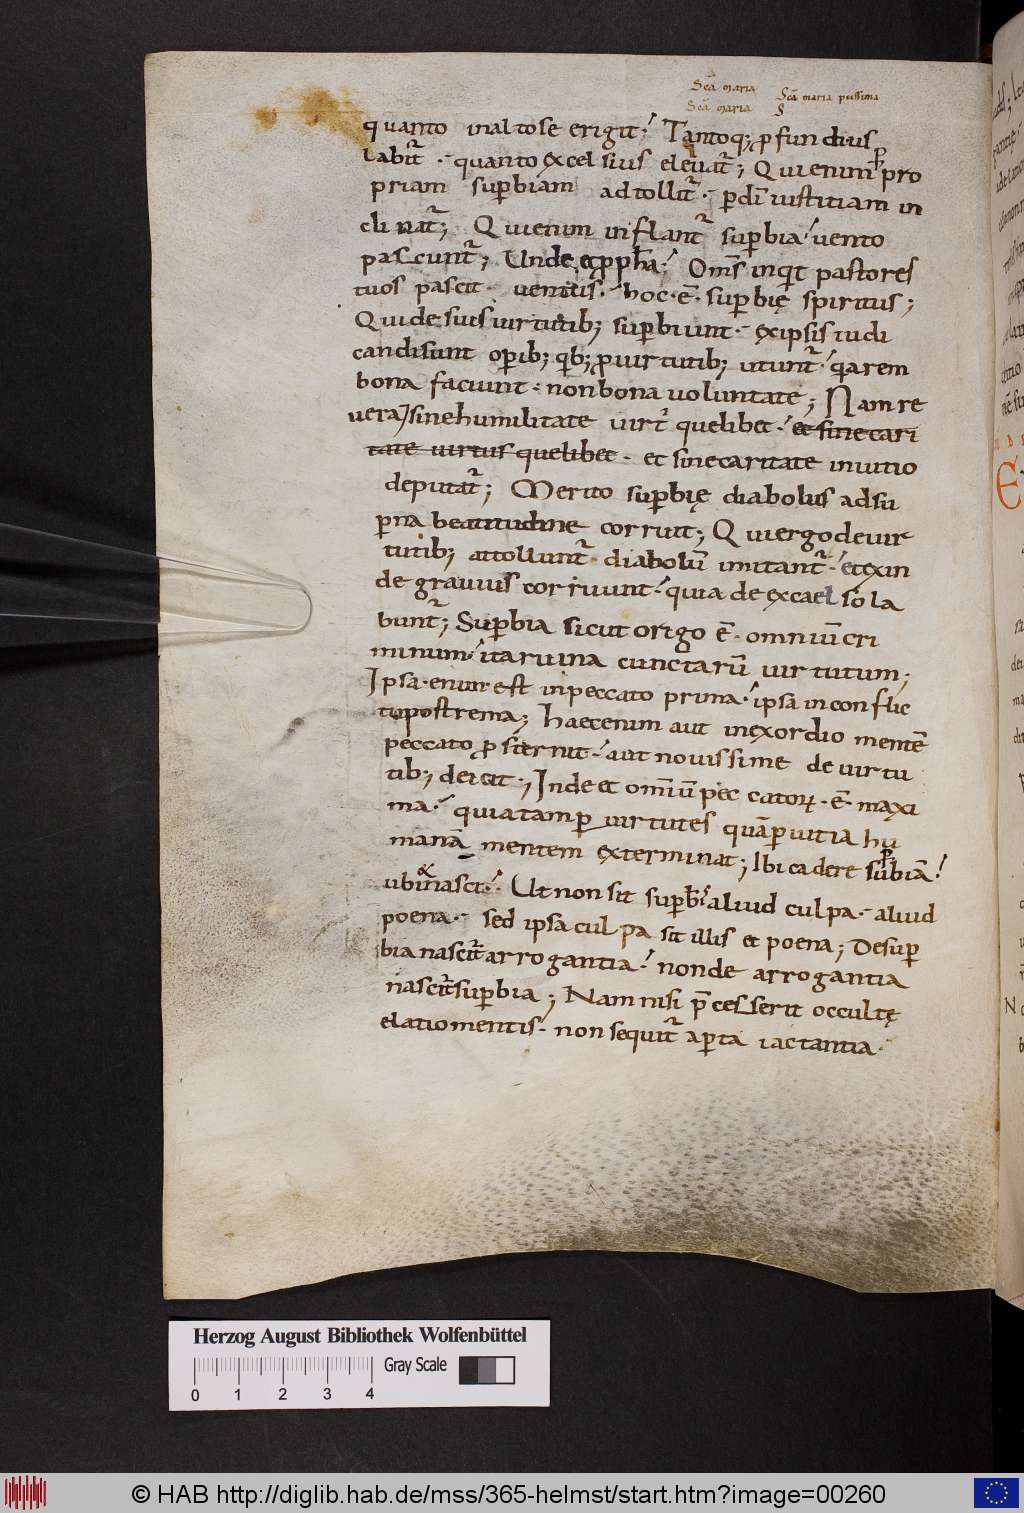 Scā maria
Scā maria piissima
Scā maria
S
quanto inaltose erigit; Tantoq; ꝓfundius
labit᷑ · quanto excelsius elevat᷑; Quienim ꝓpro
priam suꝑbiam adtollit᷑ · ꝑdī iustitiam in
clinat᷑; Quienim inflant᷑ suꝑbia uento
pascunt᷑; Unde & ꝓpħa · Om̄s inq̇t pastores
tuos pascit uentus · hoc · ē · suꝑbię spiritus;
Quidesuis uirtutib; suꝑbiunt · exipsis iudi
candisunt oꝑib; qb; ꝓuirtutib; utunt᷑ · q̇arem
bona faciunt · nonbona uoluntate; Nam re
vera sinehumilitate uirt᷒ quelibet · et sinecari
tate uirtus quelibet · et sinecaritate inuitio
deputat᷑; Merito suꝑbię diabolus adsu
ꝑna beatitudine corruit; Quiergodeuir
tutib; attollunt᷑ · diabolū imitant᷑ · etexin
de grauius corruunt · quia de excaelsola
bunt᷑; Suꝑbia sicut origo ē · omniū cri
minum · itaruina cunctarū uirtutum;
Ipsa · enim est inpeccato prima · ipsa inconflic
tupostrema; haecenim aut inexordio mentē
peccato ꝓsternit · aut nouissime de uirtu
tib; deicit · ; Inde et omīū peccatoꝝ · ē · maxi
ma · quiatamꝑ uirtutes quāꝑuitia hu
manā mentem exterminat; Ibicadere suꝑbiā
&
ubinasci · Ut non sit suꝑbi aliud culpa · aliud
poena · sed ipsaculpa sit illis et poena; Desuꝑ
bia nascit᷑ arrogantia · nonde arrogantia
nascit᷑ suꝑbia; Nam nisi p̄cesserit occultę
elatiomentis · non sequit᷑ aꝑta iactantia ·
Herzog August Bibliothek Wolfenbüttel
0 1 2 3 4
Gray Scale
© HAB http://diglib.hab.de/mss/365-helmst/start.htm?image=00260